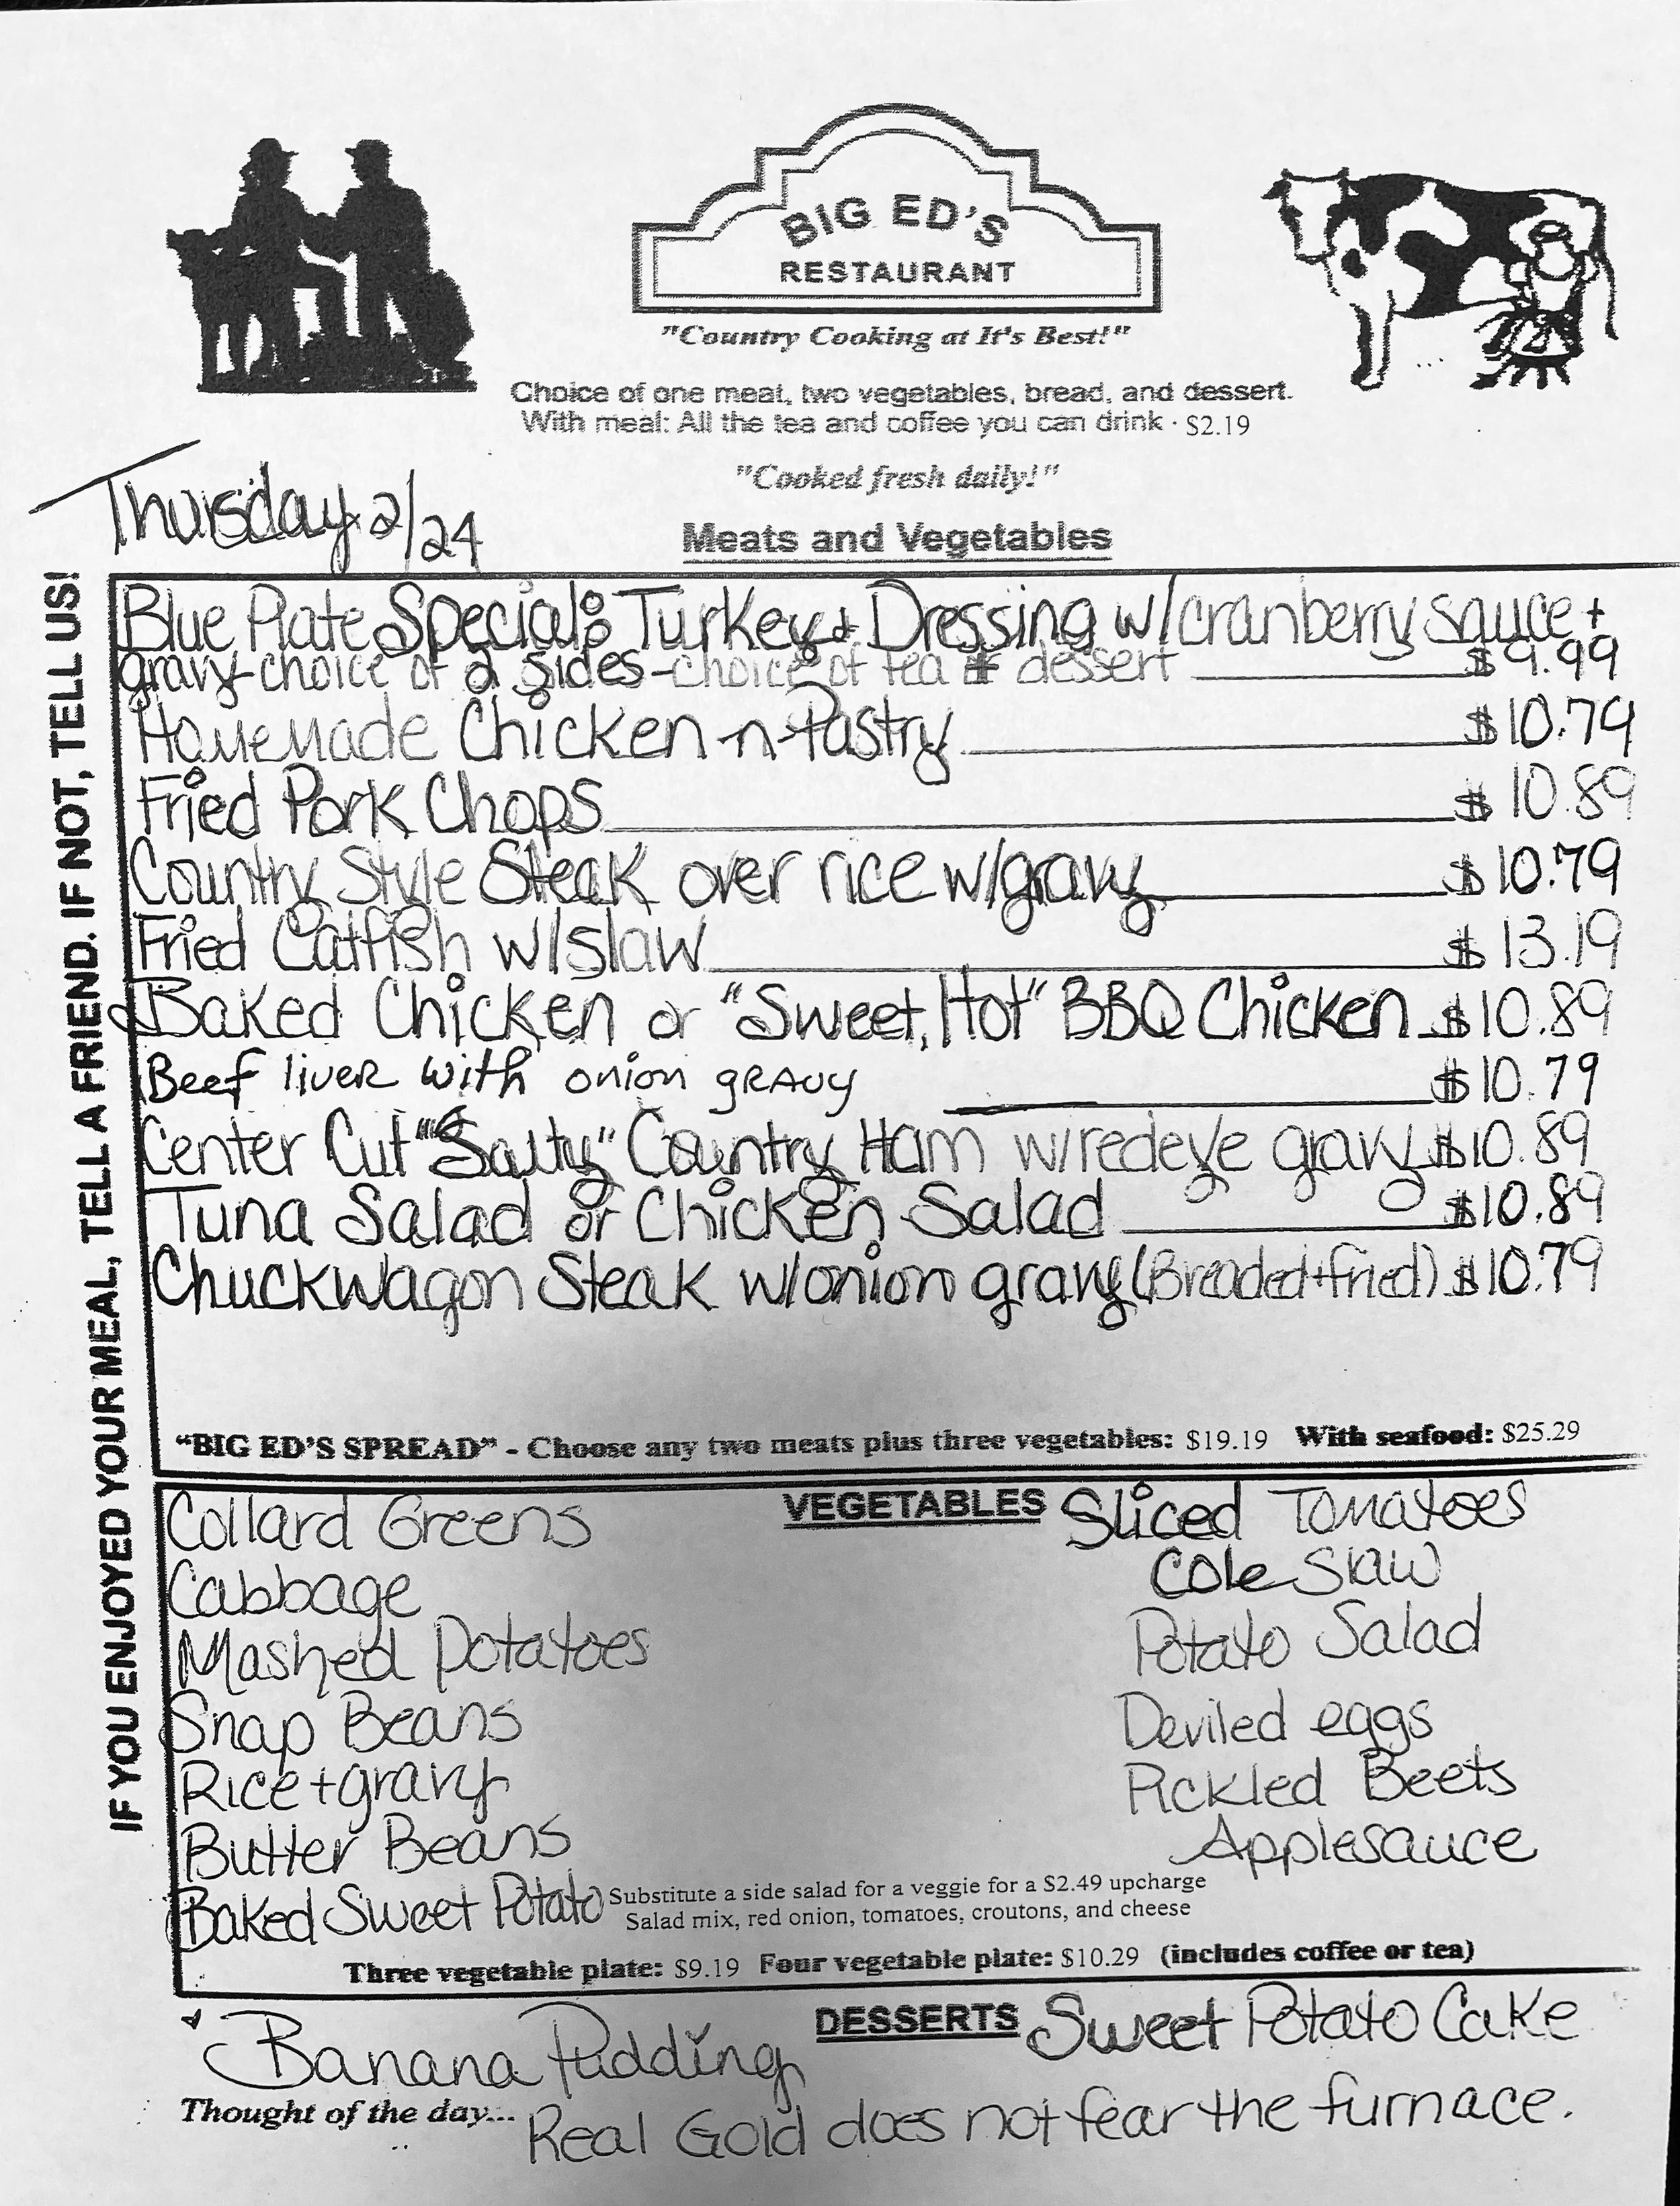 BIG ED'S
RESTAURANT
"Country Cooking at It's Best!"
Choice of one meat, two vegetables, bread, and dessert.
With meal: All the tea and coffee you can drink · $2.19
"Cooked fresh daily!"
Thursday 2/24
Meats and Vegetables
IF YOU ENJOYED YOUR MEAL, TELL A FRIEND. IF NOT, TELL US!
Blue Plate Special: Turkey + Dressing w/cranberry sauce +
gravy-choice of 2 sides-choice of tea + dessert $9.99
Homemade Chicken-n-Pastry $10.79
Fried Pork Chops $10.89
Country Style Steak over rice w/gravy $10.79
Fried Catfish w/slaw $13.19
Baked Chicken or "Sweet, Hot" BBQ Chicken $10.89
Beef liver with onion gravy $10.79
Center Cut "Salty" Country Ham w/redeye gravy $10.89
Tuna Salad or Chicken Salad $10.89
Chuckwagon Steak w/onion gravy (Breaded+fried) $10.79
"BIG ED'S SPREAD" - Choose any two meats plus three vegetables: $19.19 With seafood: $25.29
VEGETABLES
Collard Greens
Cabbage
Mashed Potatoes
Snap Beans
Rice + gravy
Butter Beans
Baked Sweet Potato
Sliced Tomatoes
Cole Slaw
Potato Salad
Deviled eggs
Pickled Beets
Applesauce
Substitute a side salad for a veggie for a $2.49 upcharge
Salad mix, red onion, tomatoes, croutons, and cheese
Three vegetable plate: $9.19 Four vegetable plate: $10.29 (includes coffee or tea)
DESSERTS
Banana Pudding
Sweet Potato Cake
Thought of the day... Real Gold does not fear the furnace.